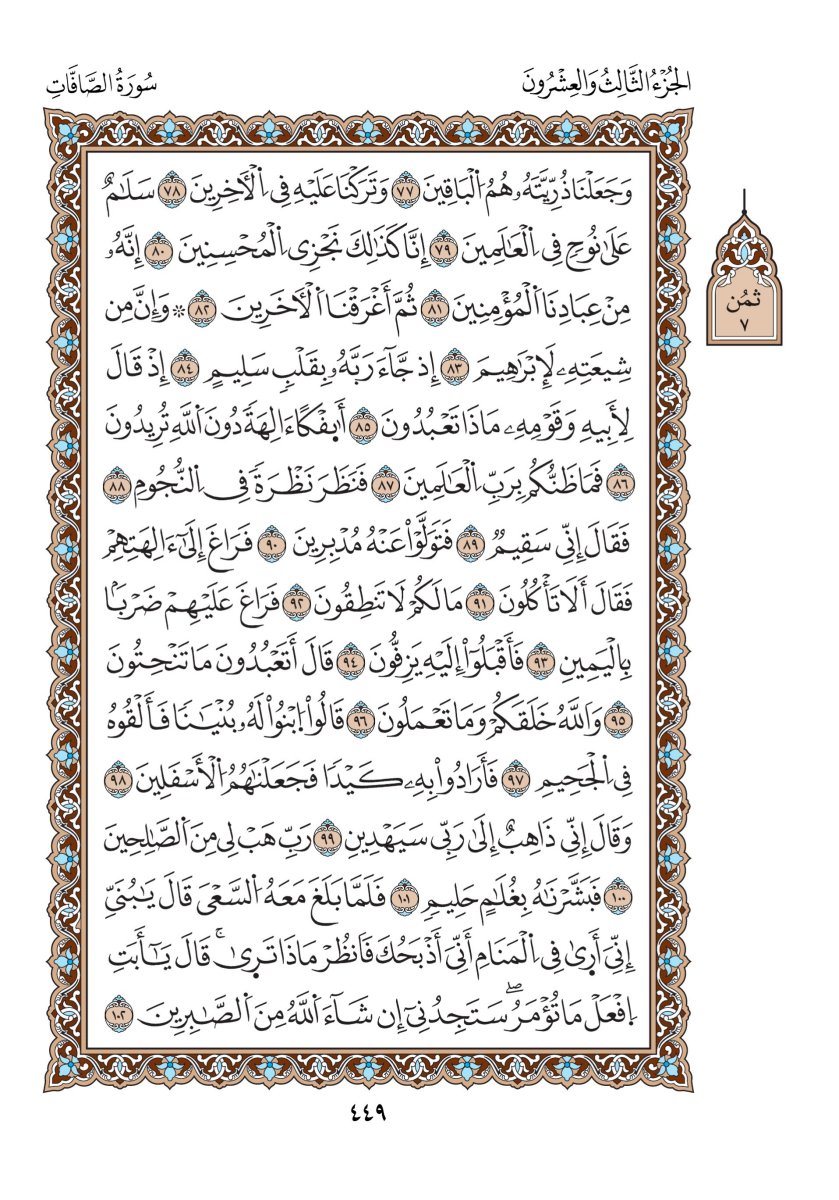 الجُزْءُ الثَّالِثُ وَالعِشْرُونَ
سُورَةُ الصَّافَّاتِ
وَجَعَلْنَا ذُرِّيَّتَهُۥ هُمُ اُ۬لْبَاقِينَ ٧٧ وَتَرَكْنَا عَلَيْهِ فِے اِ۬لْأٓخِرِينَ ٧٨ سَلَٰمٌ
عَلَىٰ نُوحٖ فِے اِ۬لْعَٰلَمِينَ ٧٩ إِنَّا كَذَٰلِكَ نَجْزِے اِ۬لْمُحْسِنِينَ ٨٠ إِنَّهُۥ
مِنْ عِبَادِنَا اَ۬لْمُؤْمِنِينَ ٨١ ثُمَّ أَغْرَقْنَا اَ۬لْأٓخَرِينَ ٨٢ ۞ وَإِنَّ مِن
شِيعَتِهِۦ لَإِبْرَٰهِيمَ ٨٣ إِذْ جَّآءَ رَبَّهُۥ بِقَلْبٖ سَلِيمٍ ٨٤ إِذْ قَالَ
لِأَبِيهِ وَقَوْمِهِۦ مَاذَا تَعْبُدُونَ ٨٥ أَئِفْكًا ءَالِهَةٗ دُونَ اَ۬للَّهِ تُرِيدُونَ
٨٦ فَمَا ظَنُّكُم بِرَبِّ اِ۬لْعَٰلَمِينَ ٨٧ فَنَظَرَ نَظْرَةٗ فِے اِ۬لنُّجُومِ ٨٨
فَقَالَ إِنِّے سَقِيمٞ ٨٩ فَتَوَلَّوْاْ عَنْهُ مُدْبِرِينَ ٩٠ فَرَاغَ إِلَىٰٓ ءَالِهَتِهِمْ
فَقَالَ أَلَا تَأْكُلُونَ ٩١ مَا لَكُمْ لَا تَنطِقُونَ ٩٢ فَرَاغَ عَلَيْهِمْ ضَرْبَۢا
بِالْيَمِينِ ٩٣ فَأَقْبَلُوٓاْ إِلَيْهِ يَزِفُّونَ ٩٤ قَالَ أَتَعْبُدُونَ مَا تَنْحِتُونَ
٩٥ وَاللَّهُ خَلَقَكُمْ وَمَا تَعْمَلُونَ ٩٦ قَالُواْ اُ۪بْنُواْ لَهُۥ بُنْيَٰنٗا فَأَلْقُوهُ
فِے اِ۬لْجَحِيمِ ٩٧ فَأَرَادُواْ بِهِۦ كَيْدٗا فَجَعَلْنَٰهُمُ اُ۬لْأَسْفَلِينَ ٩٨
وَقَالَ إِنِّے ذَاهِبٌ إِلَىٰ رَبِّے سَيَهْدِينِ ٩٩ رَبِّ هَبْ لِے مِنَ اَ۬لصَّٰلِحِينَ
١٠٠ فَبَشَّرْنَٰهُ بِغُلَٰمٍ حَلِيمٖ ١٠١ فَلَمَّا بَلَغَ مَعَهُ اُ۬لسَّعْيَ قَالَ يَٰبُنَيِّ
إِنِّيَ أَر۪ىٰ فِے اِ۬لْمَنَامِ أَنِّيَ أَذْبَحُكَ فَانظُرْ مَاذَا تَر۪ىٰۚ قَالَ يَٰٓأَبَتِ
اِ۪فْعَلْ مَا تُؤْمَرُۖ سَتَجِدُنِيٓ إِن شَآءَ اَ۬للَّهُ مِنَ اَ۬لصَّٰبِرِينَ ١٠٢
ثُمُن
٧
٤٤٩